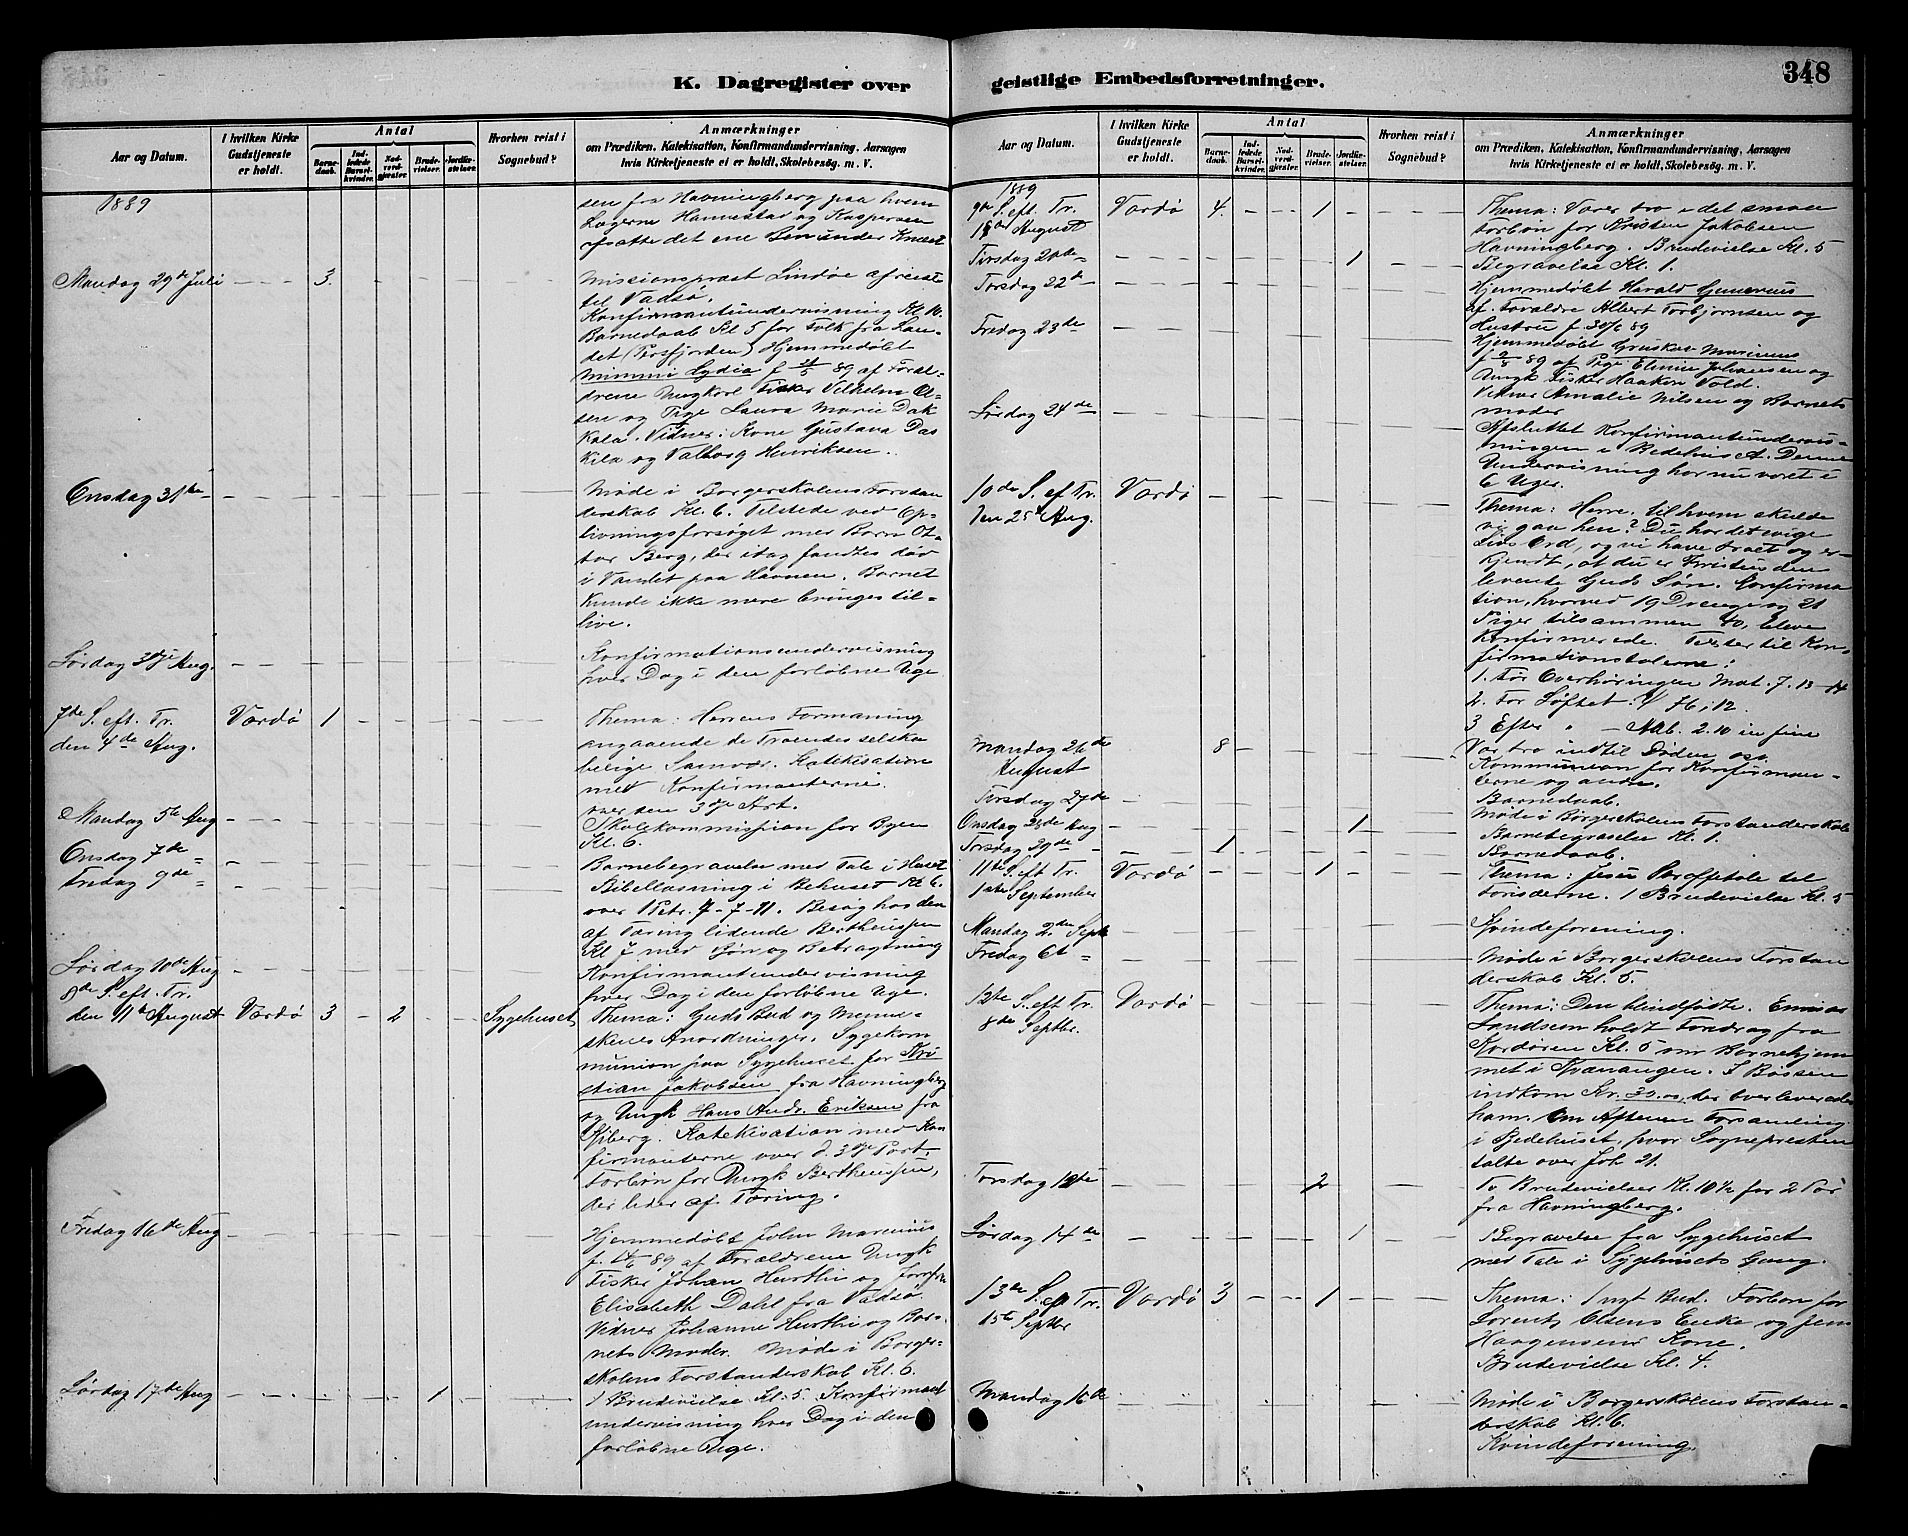 K. Dagregister over
Aar og Datum.
I hvilken Kirke
Gudstjeneste
er holdt.
Antal
Barne-
daab.
Ind-
ledede
Barsel-
kvinder.
Nad-
verd-
gjæster.
Brude-
vielser.
Jordfæ-
stelser.
Hvorhen reist i
Sognebud?
Anmærkninger
om Prædiken, Katekisation, Konfirmandundervisning, Aarsagen
hvis Kirketjeneste ei er holdt, Skolebesøg. m. V.
1889
sen fra Havningberg paa hvem
Lægerne Hannestad og Kaspersen
afsatte det ene Ben under Knæet
Mandag 29de Juli - - - 3.
Missionsprest Lindøe afreiste
til Vadsø.
Konfirmantundervisning Kl. 10.
Barnedaab Kl 5 for Folk fra Lan-
det (Persfjorden) Hjemmedøbt
Mimmi Lydia f 21/5 89 af Foræl-
drene Ungkarl Fisker Vilhelm Ol-
sen og Pige Laura Marie Dak
kala. Vidner: Kone Gustava Das
kila og Valborg Henriksen.
Onsdag 31te
Møde i Borgerskolens Forstan
derskab Kl. 6. Tilstede ved Op-
livningsforsøget med Barn Ot-
tar Berg, der idag fandtes død
i Vandet paa Havnen. Barnet
kunde ikke mere bringes til-
live.
Lørdag 3dje Aug.
Konfirmationsundervisning
hver Dag i den forløbne Uge
7de S. eft. Tr. Vardø 1
den 4de Aug.
Thema: Herrens Formaning
angaaende de Troendes selska
belige Samvær. Katekisation
med Konfirmanterne
over den 3dje Art.
Mandag 5te Aug
Skolekommission for Byen
Kl. 6.
Onsdag 7de "
Barnebegravelse med Tale i Huset
Fredag 9de "
Bibellæsning i Behuset Kl 6.
over 1 Petr. 4-7-11. Besøg hos den
af Tæring lidende Bertheussen
Kl 7 med Bøn og Betragtning
Lørdag 10de Aug
Konfirmantundervisning
hver Dag i den forløbne Uge.
8de S. eft. Tr.
den 11te August Vardø 3 - 2 - - Sygehuset
Thema: Guds Bud og Menne-
skenes Anordninger. Sygekom
munion paa Sygehuset for Kri
stian Jakobsen fra Havningberg
og Ungk Hans Andr. Eriksen fra
Kiberg. Katekisation med Kon
firmanterne over d. 3dje Part.
Forbøn for Ungk Bertheussen,
der lider af Tæring.
Fredag 16de Aug
Hjemmedøbt John Marenius
89 af Forældrene Ungk
Fisker Johan Hurthi og Jomfru
Elisabeth Dahl fra Vadsø.
Vidner Johanne Hurthi og Bar-
nets Moder. Møde i Borger-
skolens Forstanderskab Kl. 6.
Lørdag 17de Aug 1
1 Brudevielse Kl. 5. Konfirmant
undervisning hver Dag i den
forløbne Uge.
geistlige Embedsforretninger.
348
Aar og Datum.
I hvilken Kirke
Gudstjeneste
er holdt.
Antal
Barne-
daab.
Ind-
ledede
Barsel-
kvinder.
Nad-
verd-
gjæster.
Brude-
vielser.
Jordfæ-
stelser.
Hvorhen reist i
Sognebud?
Anmærkninger
om Prædiken, Katekisation, Konfirmandundervisning, Aarsagen
hvis Kirketjeneste ei er holdt, Skolebesøg. m. V.
1889
9de S. eft. Tr. Vardø 4. - - 1 -
18de August
Thema: Værer tro i det smaa
Forbøn for Kristen Jakobsen
Havningberg. Brudevielse Kl. 5
Tirsdag 20de " 1
Begravelse Kl. 1.
Torsdag 22de
Hjemmedøbt Harald
af Forældre Albert Torbjørnsen og
Hustru f 30/6 89
Fredag 23de
Hjemmedøbt Marinus
f 2/8 89 af Pige Eline Johansen og
Ungk Fisker Haakon Vold.
Vidner Amalie Nilsen og Barnets
Moder
Lørdag 24de
Afsluttet Konfirmantundervis-
ningen i Bedehuset. Denne
Undervisning har nu været i
6 Uger.
10de S. ef Tr. Vardø
den 25de Aug.
Thema: Herre, til hvem skulde
vi gaa hen? Du har det evige
Livs Ord, og vi have troet og er-
kjendt, at du er Kristus den
levende Guds Søn. Konfirma
tion, hvorved 19 Drenge og 21
Piger tilsammen 40, bleve
Konfirmerede. Texter til Kon-
firmationstalerne:
1. Før Overhøringen Mat. 7. 13-14
2. For Løftet: ψ 76; 12
3 Efter " - Aab. 2. 10 in fine
Vær tro indtil Døden osv.
Kommunion for Konfirman-
terne og andre.
Mandag 26de 8
August
Barnedaab.
Tirsdag 27de
Møde i Borgerskolens Forstanderskab
Onsdag 28de Aug 1
Barnebegravelse Kl. 1.
Torsdag 29de " 1
Barnedaab.
11te S. eft Tr. Vardø - - - 1
1ste September
Thema: Jesu Straffetale til
Farisæerne. 1 Brudevielse Kl. 5
Mandag 2den Septbr
Kvindeforening.
Fredag 6te "
Møde i Borgerskolens Forstan
derskab Kl. 5.
12te S. eft Tr. Vardø
8de Septbr.
Thema: Den blindfødte. Emissær
Landsem holdt Foredrag fra
Kordøren Kl. 5 om Barnehjem
met i Kvænangen. I Bøssen
indkom Kr. 30.00, der overleveredes
ham. Om Aftenen Forsamling
i Bedehuset, hvor Sognepresten
talte over Joh 21.
Torsdag 12te 2
To Brudevielser Kl. 10½ for 2 Par
fra Havningberg.
Lørdag 14de 1
Begravelse fra Sygehuset
med Tale i Sygehusets Gang.
13de S. ef Tr. Vardø 3 - - 1 -
15de Septbr
Thema: 1 nyt Bud. Forbøn for
Lorentz Olsens Enke og Jens
Haagensens Kone.
Brudevielse Kl. 4.
Mandag 16de
Møde i Borgerskolens Forstan-
derskab Kl. 6.
Kvindeforening.